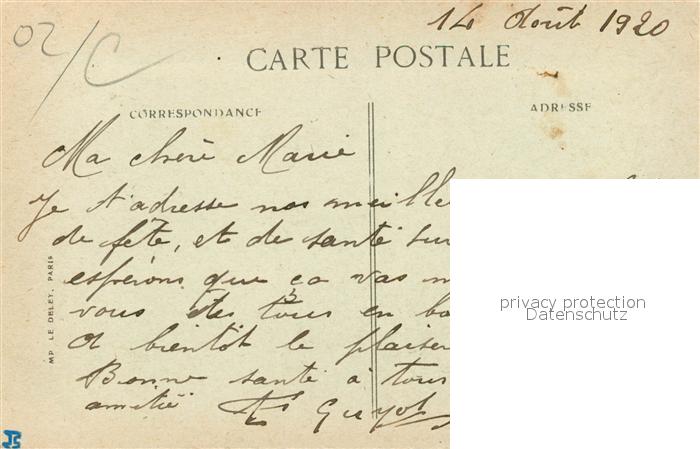 14 Août 1920
02/C
CARTE POSTALE
CORRESPONDANCE
ADRESSE
Ma chère Marie
Je t'adresse nos meille
de fête, et de santé sur
espérons que ça vas m
vous êtes tous en bo
A bientôt le plaiser
Bonne santé à tous
amitié Guyot
MP LE DELEY, PARIS
privacy protection
Datenschutz